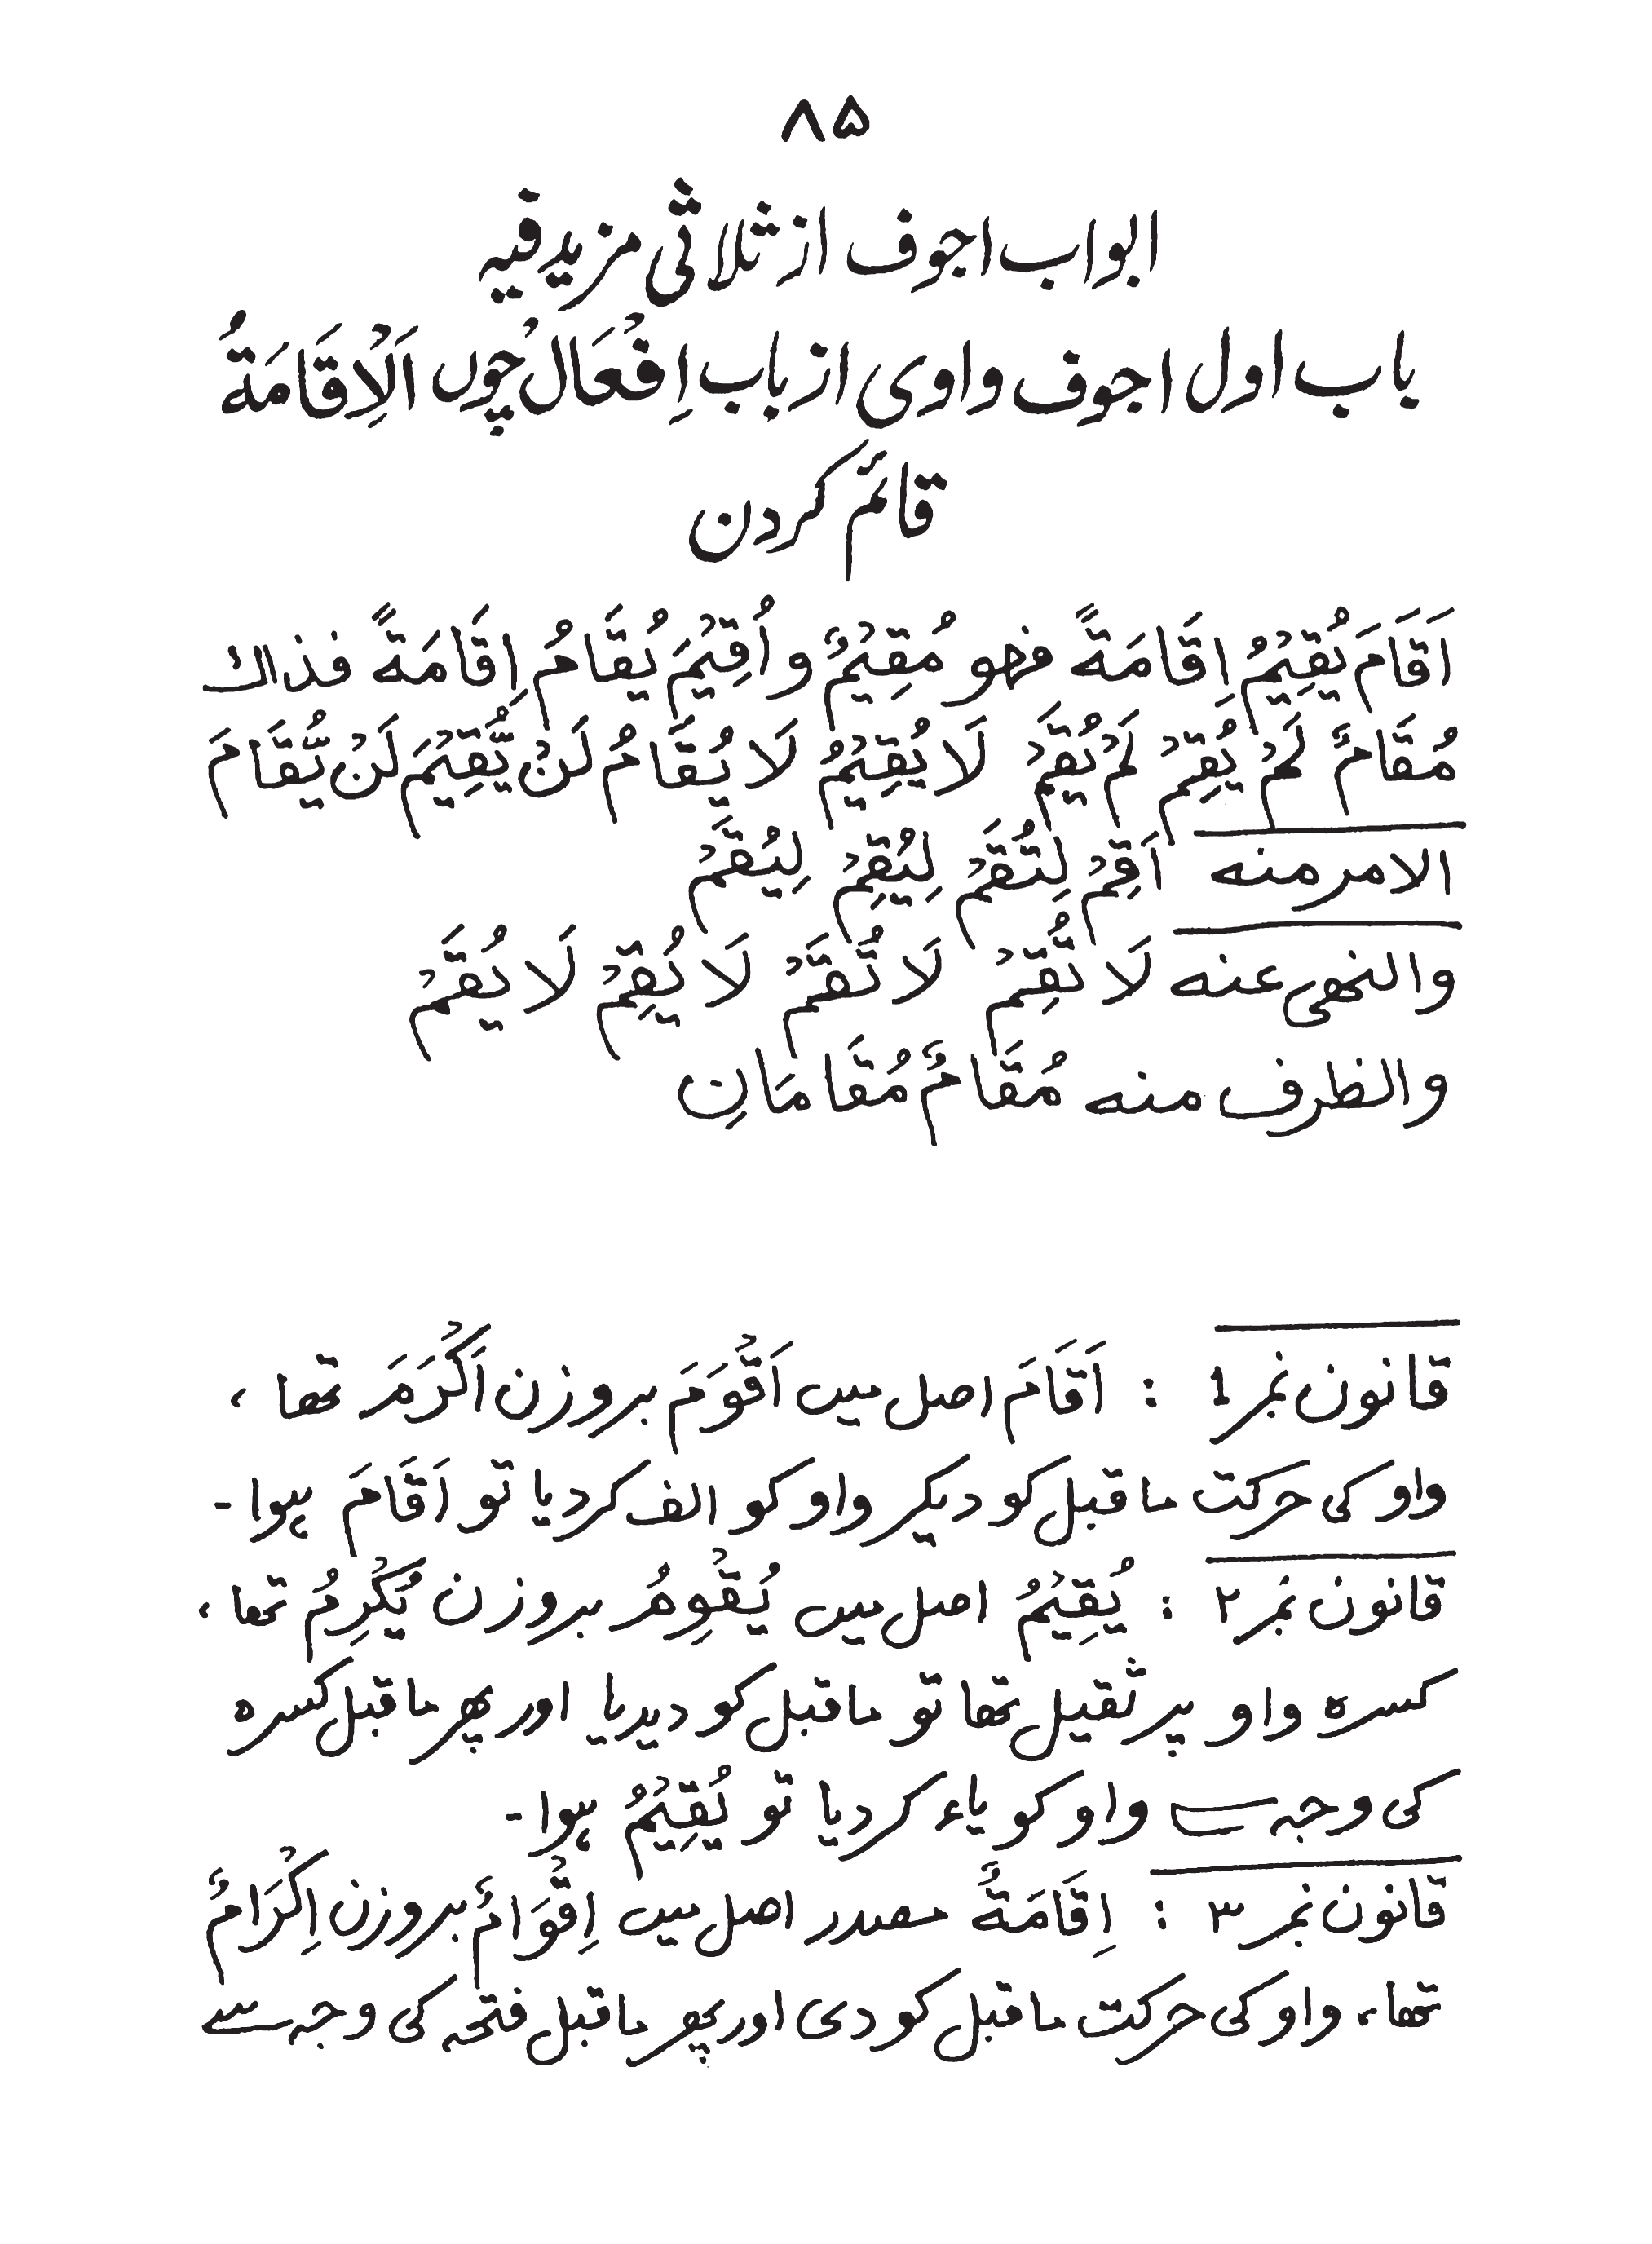 ۸۵
ابواب اجوف از ثلاثی مزید فیہ
باب اول اجوف واوی از باب اِفْعَالْ چوں اَلْاِقَامَةُ
قائم کردن
اَقَامَ یُقِیْمُ اِقَامَةً فهو مُقِیْمٌ و اُقِیْمَ یُقَامُ اِقَامَةً فذاك
مُقَامٌ لَمْ یُقِمْ لَمْ یُقَمْ لَا یُقِیْمُ لَا یُقَامُ لَنْ یُّقِیْمَ لَنْ یُّقَامَ
الامر منه اَقِمْ لِتُقَمْ لِیُقِمْ لِیُقَمْ
والنهی عنه لَا تُقِمْ لَا تُقَمْ لَا یُقِمْ لَا یُقَمْ
والظرف منه مُقَامٌ مُقَامَانِ
قانون نمبر 1 : اَقَامَ اصل میں اَقْوَمَ بروزن اَکْرَمَ تھا ،
واو کی حرکت ماقبل کو دیکر واو کو الف کردیا تو اَقَامَ ہوا -
قانون نمبر ۲ : یُقِیْمُ اصل میں یُقْوِمُ بروزن یُکْرِمُ تھا ،
کسرہ واو پر ثقیل تھا تو ماقبل کو دیدیا اور پھر ماقبل کسرہ
کی وجہ سے واو کو یاء کردیا تو یُقِیْمُ ہوا -
قانون نمبر ۳ : اِقَامَةٌ مصدر اصل میں اِقْوَامٌ بروزن اِکْرَامٌ
تھا، واو کی حرکت ماقبل کو دی اور پھر ماقبل فتحہ کی وجہ سے